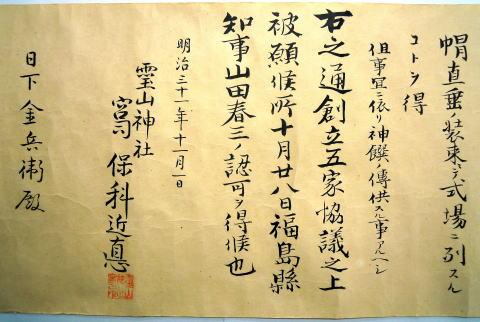 帽直垂ノ装束ニテ式場ニ列スル
コトヲ得
但事冝ニ依リ神饌ノ傳供スル事アルヘシ
右之通創立五家協議之上
被願候所十月廿八日福島縣
知事山田春三ノ認可ヲ得候也
明治三十一年十一月一日
霊山神社
宮司 保科近悳
日下金兵衛殿